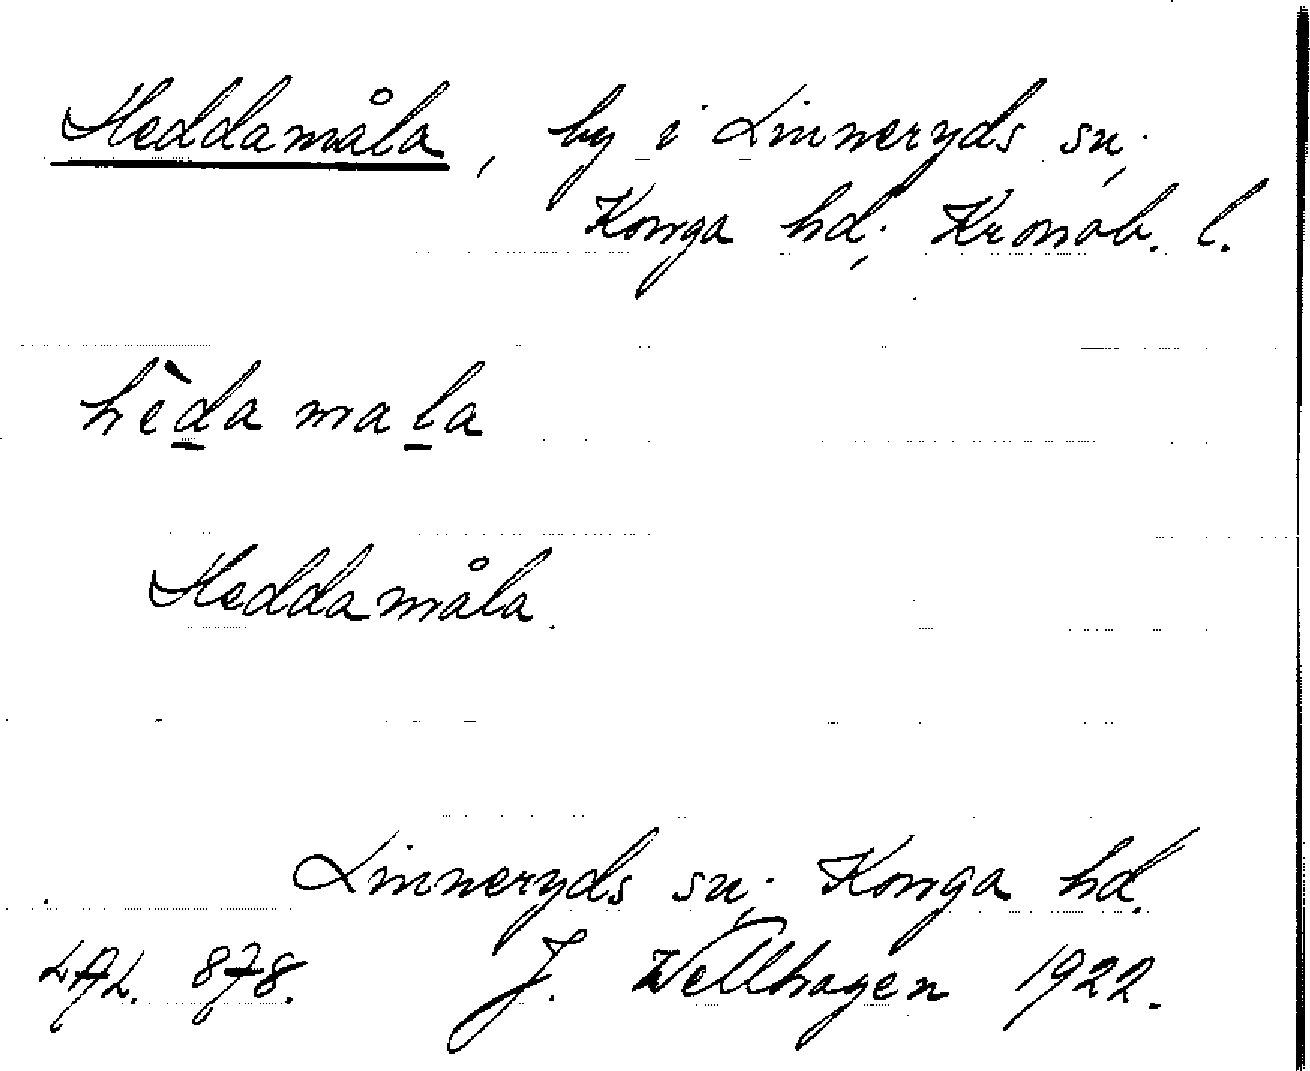 Heddamåla, by i Linneryds sn;
Konga hd; Kronob. l.
hèda mala
Heddamåla.
Linneryds sn; Konga hd.
LAL. 878. J. Wellhagen 1922.